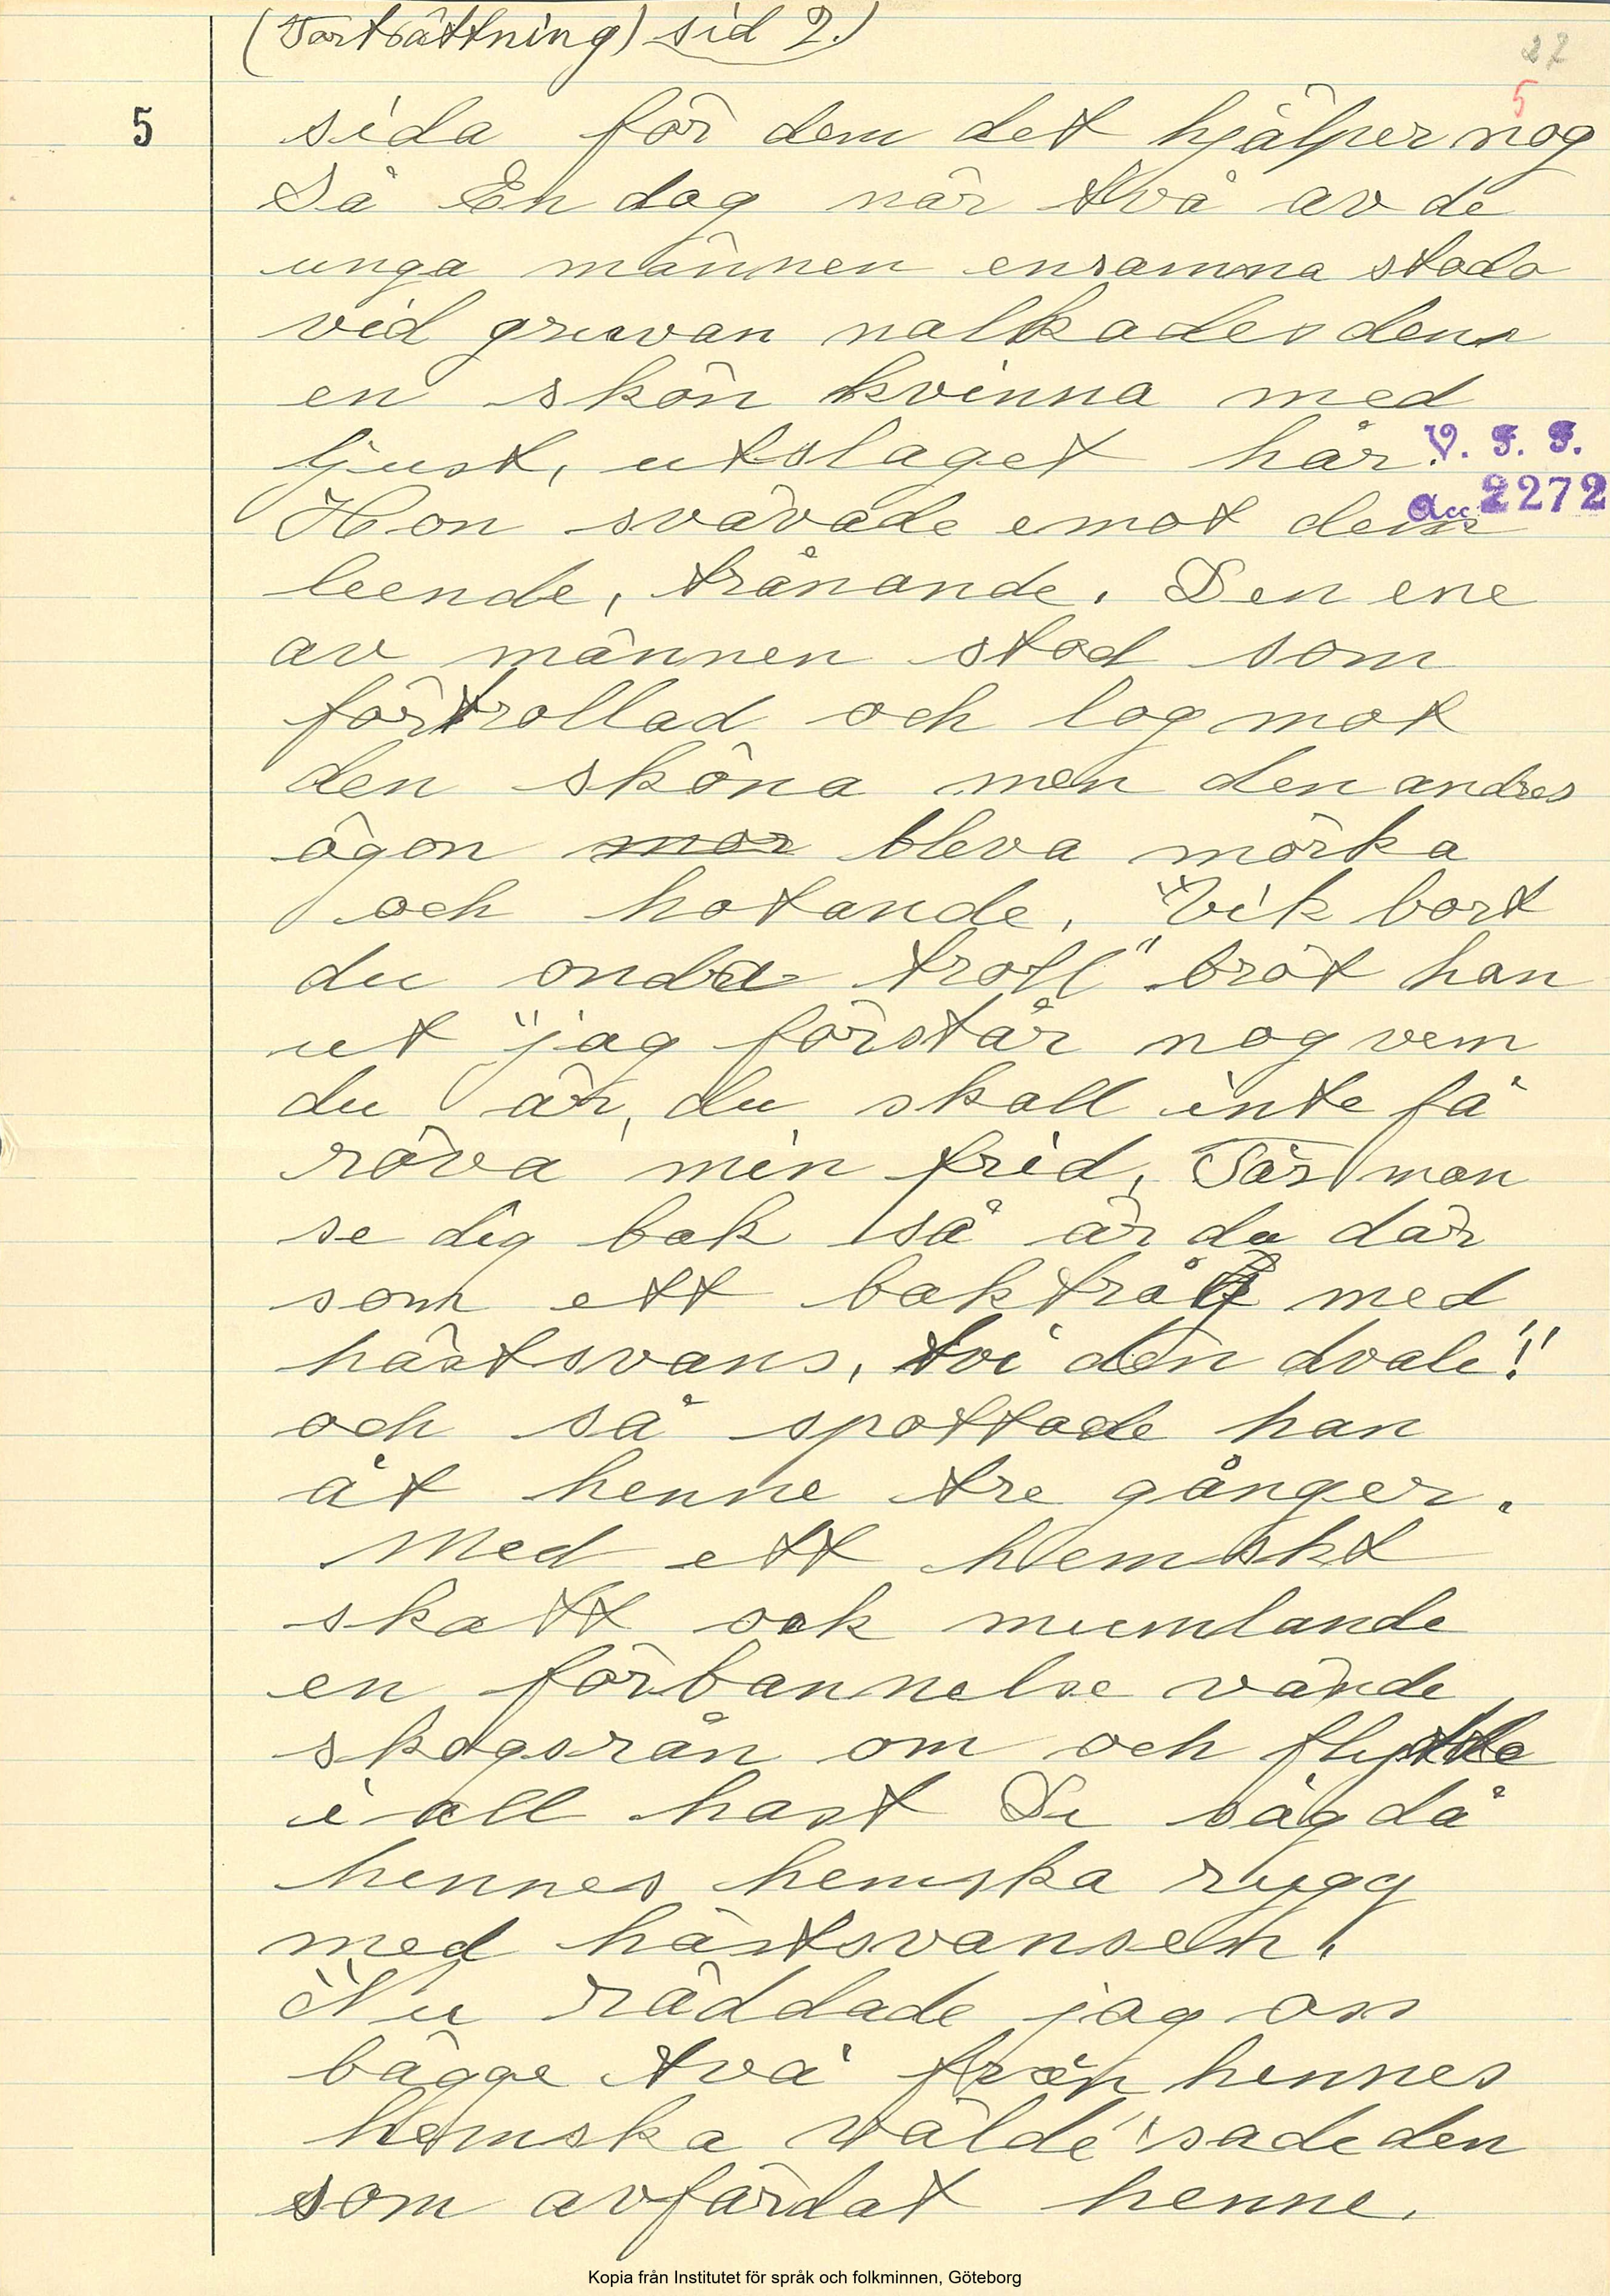 (Fortsättning) sid 2.)
22
5
5
sida för dem det hjälper nog
Så En dag när två av de
unga männen ensamma stodo
vid gruvan nalkades dem
en skön kvinna med
ljust, utslaget hår.
V. F. F.
Hon svävade emot dem
acc 2272
leende, trånande. Den ene
av männen stod som
förtrollad och log mot
den sköna men den andres
ögon mor bleva mörka
och hotande. "Vik bort
du onda troll" bröt han
ut "jag förstår nog vem
du är, du skall inte få
röva min frid. Får man
se dig bak så är du där
som ett baktråg med
hästsvans, tvi den dvale!"
och så spottade han
åt henne tre gånger.
Med ett hemskt
skatt ock mumlande
en förbannelse vände
skogsrån om och flydde
i all hast De såg då
hennes hemska rygg
med hästsvansen.
"Nu räddade jag oss
bägge två från hennes
hemska välde" sade den
som avfärdat henne.
Kopia från Institutet för språk och folkminnen, Göteborg